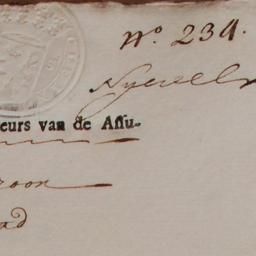 No. 234.
Nyevelt
eurs van de Aſſu-
zoon
ad